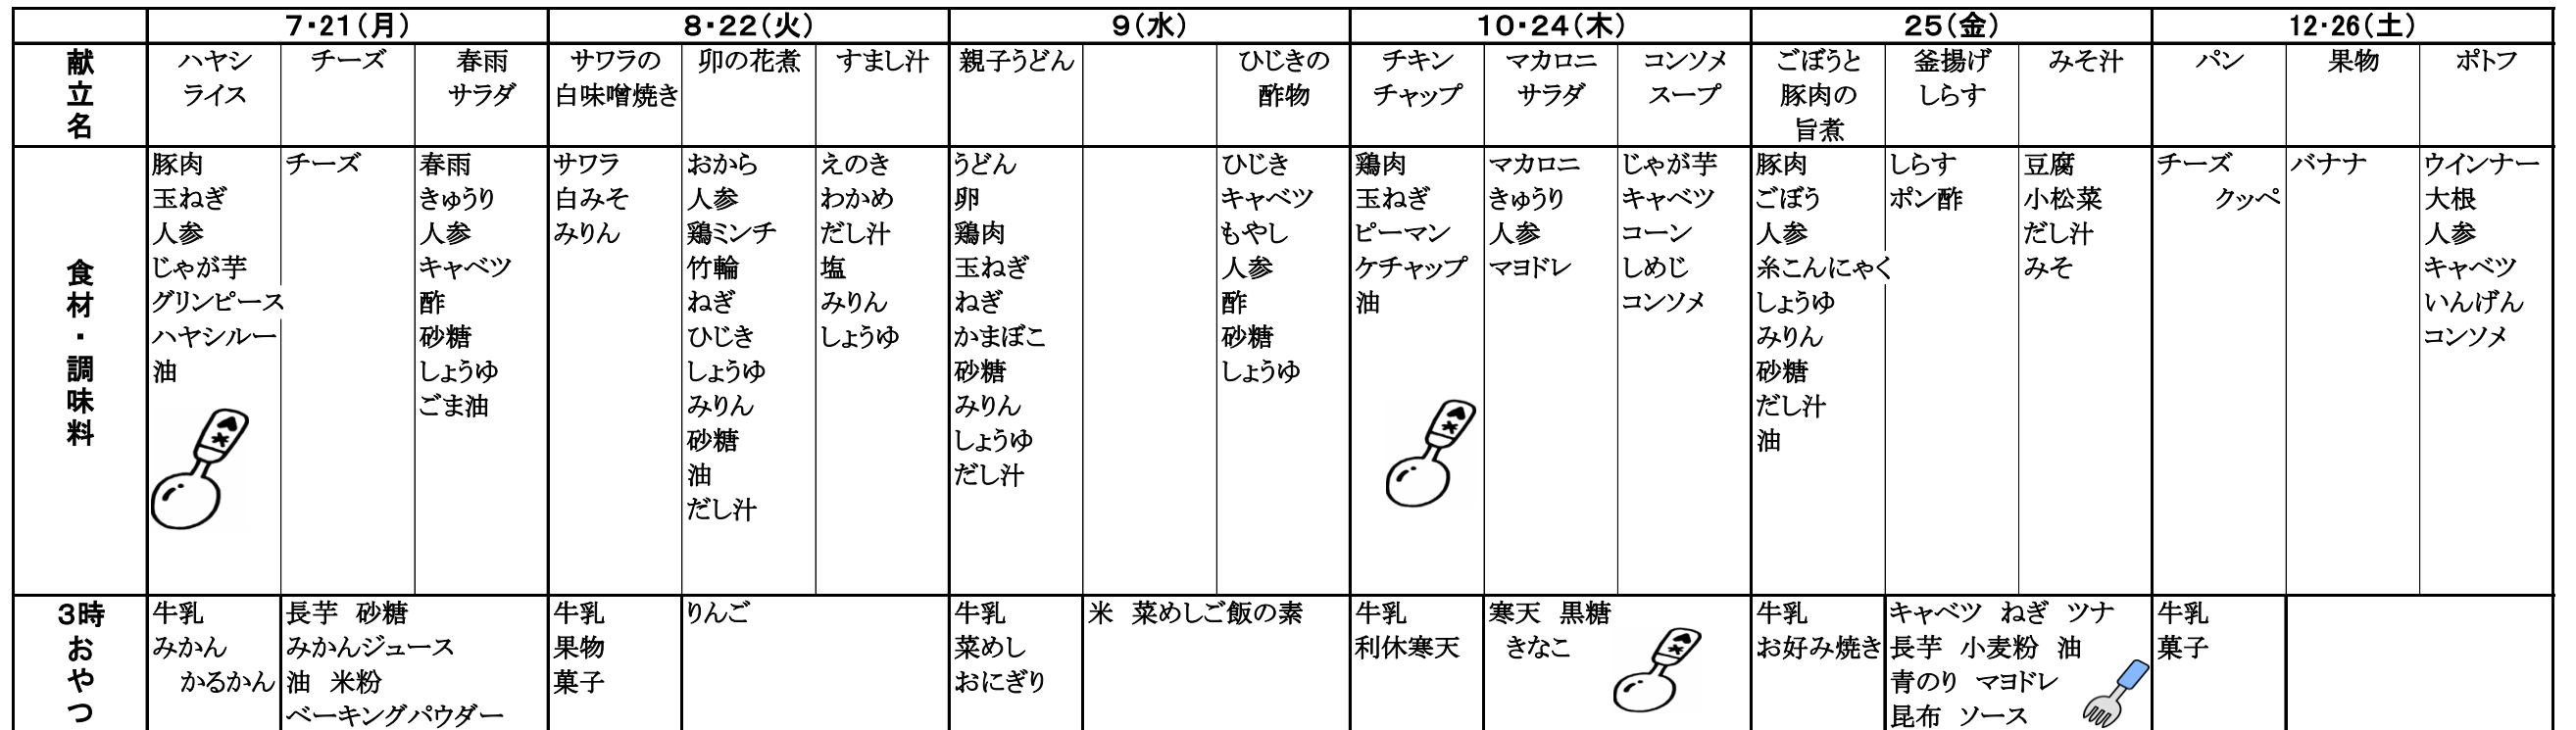 7・21(月)
8・22(火)
9(水)
10・24(木)
25(金)
12・26(土)
献立名
ハヤシ
ライス
チーズ
春雨
サラダ
サワラの
白味噌焼き
卯の花煮
すまし汁
親子うどん
ひじきの
酢物
チキン
チャップ
マカロニ
サラダ
コンソメ
スープ
ごぼうと
豚肉の
旨煮
釜揚げ
しらす
みそ汁
パン
果物
ポトフ
食材・調味料
豚肉
玉ねぎ
人参
じゃが芋
グリンピース
ハヤシルー
油
チーズ
春雨
きゅうり
人参
キャベツ
酢
砂糖
しょうゆ
ごま油
サワラ
白みそ
みりん
おから
人参
鶏ミンチ
竹輪
ねぎ
ひじき
しょうゆ
みりん
砂糖
油
だし汁
えのき
わかめ
だし汁
塩
みりん
しょうゆ
うどん
卵
鶏肉
玉ねぎ
ねぎ
かまぼこ
砂糖
みりん
しょうゆ
だし汁
ひじき
キャベツ
もやし
人参
酢
砂糖
しょうゆ
鶏肉
玉ねぎ
ピーマン
ケチャップ
油
マカロニ
きゅうり
人参
マヨドレ
じゃが芋
キャベツ
コーン
しめじ
コンソメ
豚肉
ごぼう
人参
糸こんにゃく
しょうゆ
みりん
砂糖
だし汁
油
しらす
ポン酢
豆腐
小松菜
だし汁
みそ
チーズ
クッペ
バナナ
ウインナー
大根
人参
キャベツ
いんげん
コンソメ
3時おやつ
牛乳
みかん
かるかん
長芋 砂糖
みかんジュース
油 米粉
ベーキングパウダー
牛乳
果物
菓子
りんご
牛乳
菜めし
おにぎり
米 菜めしご飯の素
牛乳
利休寒天
寒天 黒糖
きなこ
牛乳
お好み焼き
キャベツ ねぎ ツナ
長芋 小麦粉 油
青のり マヨドレ
昆布 ソース
牛乳
菓子